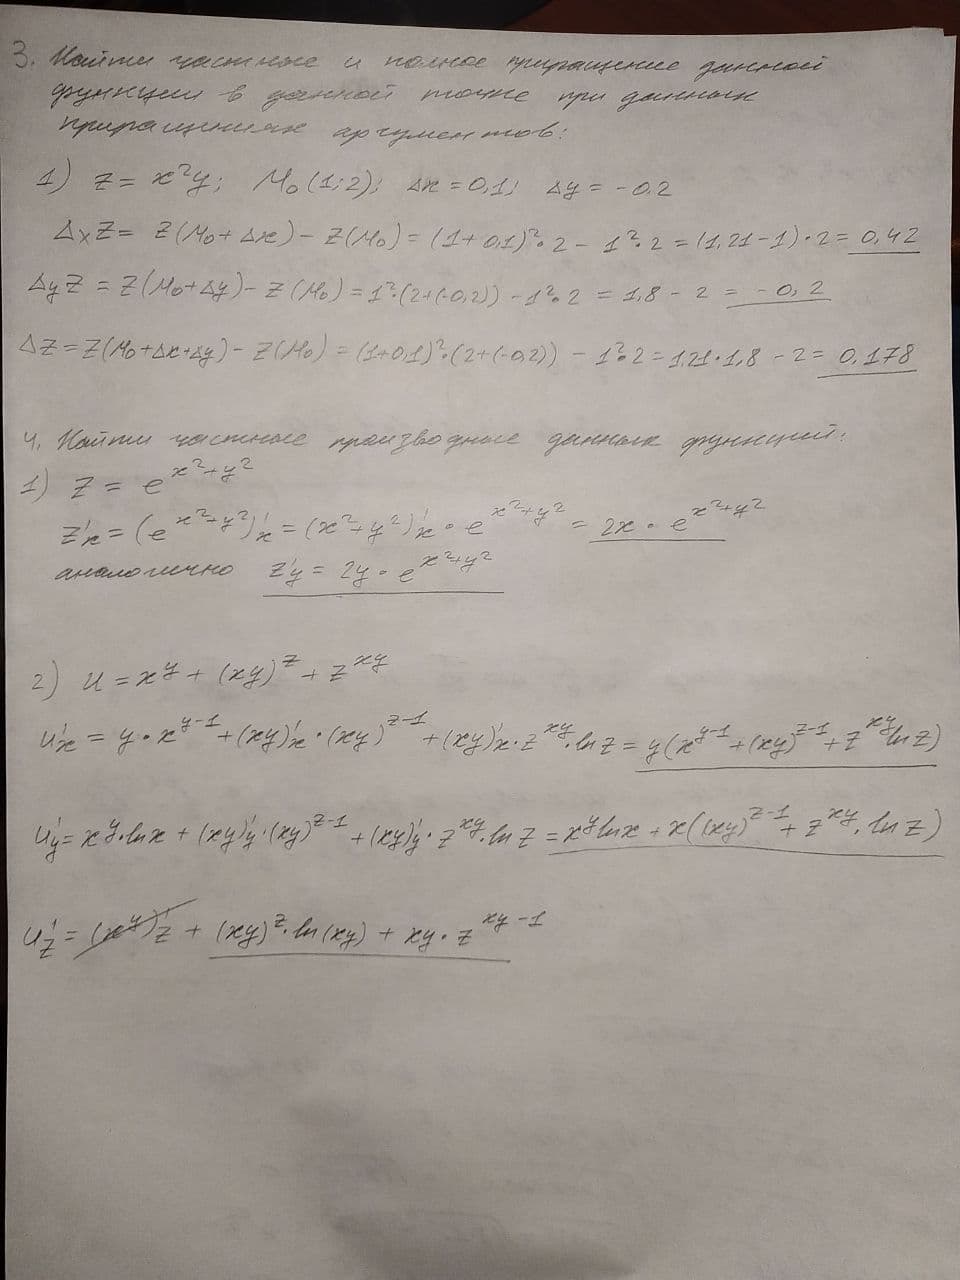 3. Найти частные и полное приращение данной
функции в данной точке при данных
приращениях аргументов:
1) z = x²y; M₀(1;2); Δx = 0,1; Δy = -0.2
ΔₓZ = Z(M₀+Δx) - Z(M₀) = (1+0,1)²·2 - 1²·2 = (1,21-1)·2 = 0,42
ΔyZ = Z(M₀+Δy) - Z(M₀) = 1²·(2+(-0,2)) - 1²·2 = 1,8 - 2 = -0,2
ΔZ = Z(M₀+Δx+Δy) - Z(M₀) = (1+0,1)²·(2+(-0,2)) - 1²·2 = 1,21·1,8 - 2 = 0,178
4. Найти частные производные данных функций:
1) Z = e^(x²+y²)
Z'x = (e^(x²+y²))'x = (x²+y²)'x · e^(x²+y²) = 2x · e^(x²+y²)
аналогично Z'y = 2y · e^(x²+y²)
2) u = x^y + (xy)^z + z^(xy)
u'x = y·x^(y-1) + (xy)'x·(xy)^(z-1) + (xy)'x·z^(xy)·ln z = y(x^(y-1) + (xy)^(z-1) + z^(xy) ln z)
u'y = x^y·ln x + (xy)'y·(xy)^(z-1) + (xy)'y·z^(xy)·ln z = x^y ln x + x((xy)^(z-1) + z^(xy)·ln z)
u'z = (x^y)'z + (xy)^z·ln(xy) + xy·z^(xy-1)